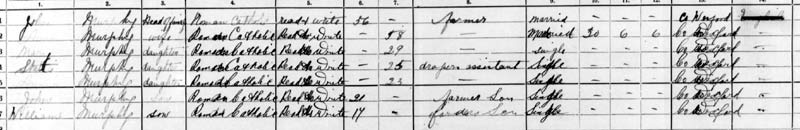 1 John Murphy Head of Family Roman Catholic read & write 56 — farmer married — — — Co Wexford
Murphy wife Roman Catholic Read & Write — 58 — Married 30 6 6 Co Wexford —
Murphy daughter Roman Catholic Read & Write — 29 — Single — — — Co Wexford —
Murphy daughter Roman Catholic Read & Write — 25 drapers assistant Single — — — Co Wexford —
Murphy daughter Roman Catholic Read & Write — 23 — Single — — — Co Wexford —
John Murphy Roman Catholic Read & Write 21 — farmer Son Single — — — Co Wexford —
William Murphy son Roman Catholic Read & Write 17 — farmers Son Single — — — Co Wexford —